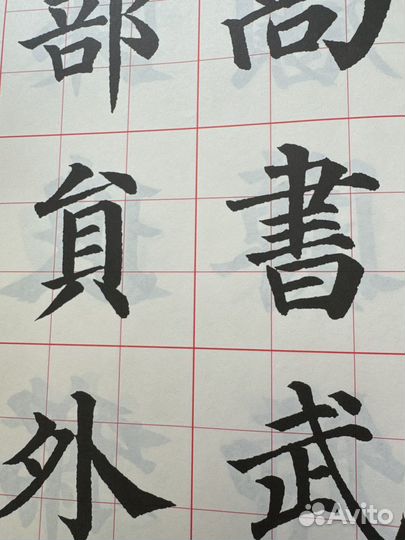 尚書武
部貟外
Avito